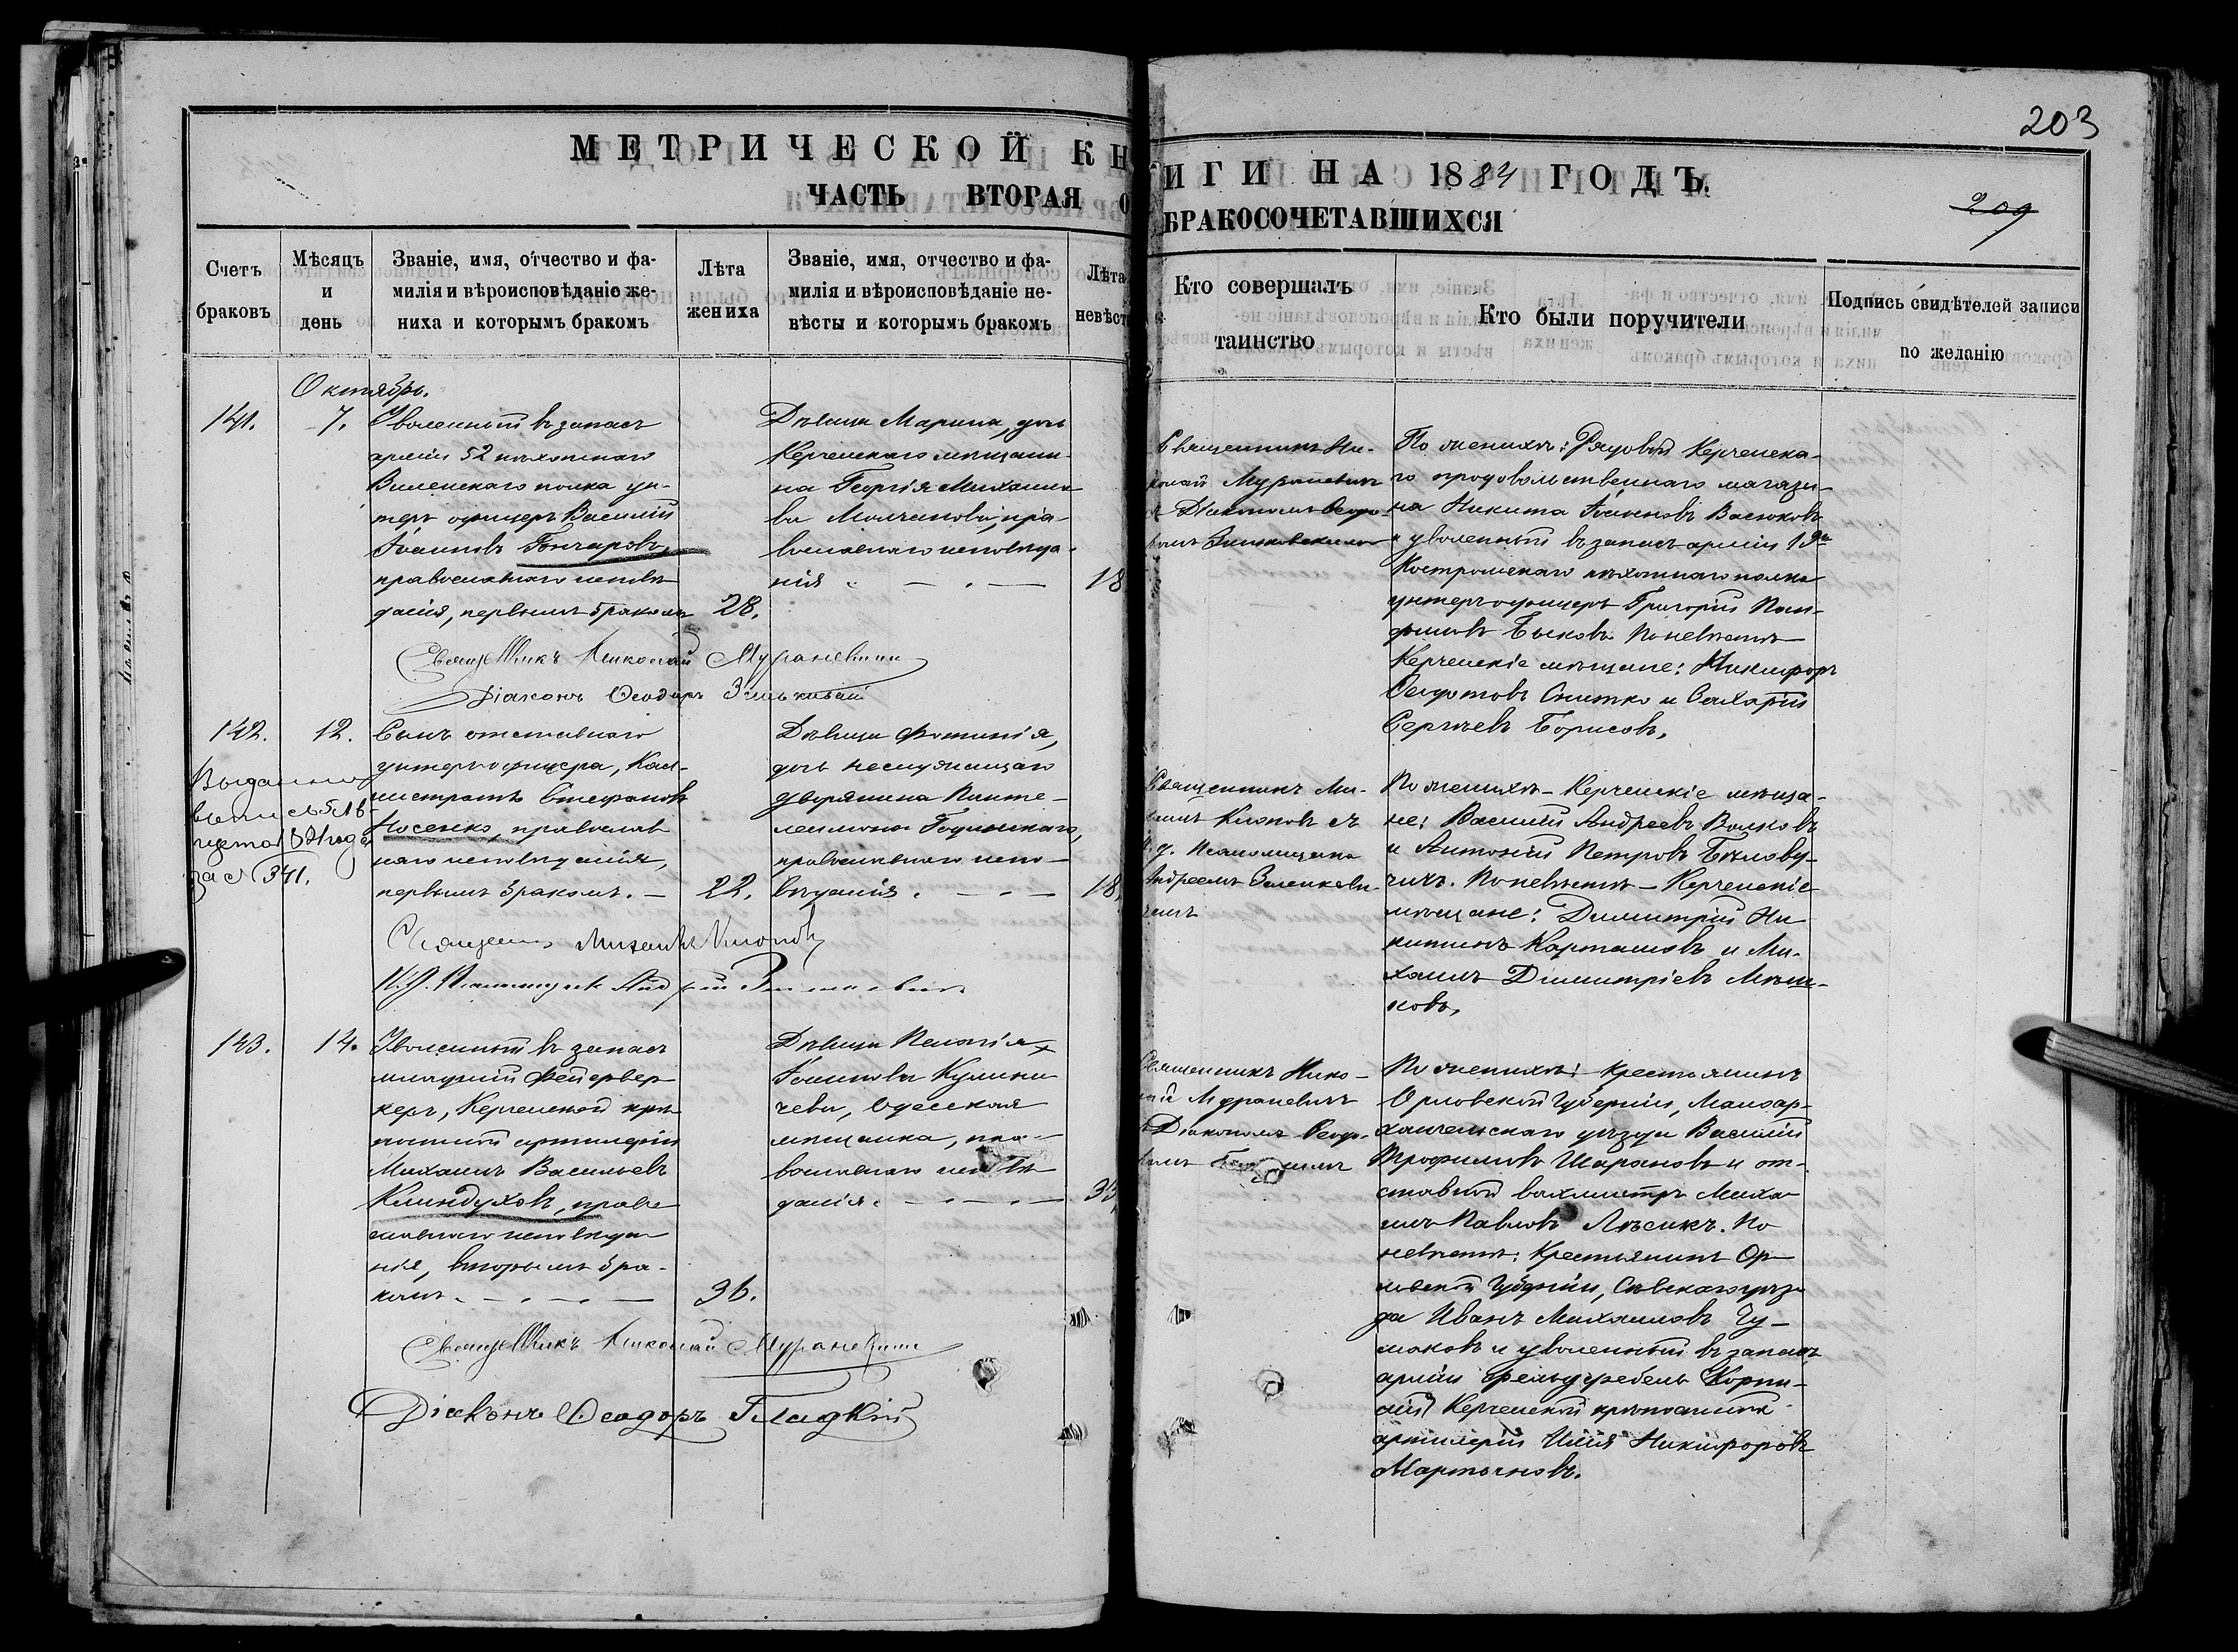 203
209
МЕТРИЧЕСКОЙ КН
ИГИ НА 1884 ГОДЪ.
ЧАСТЬ ВТОРАЯ О
БРАКОСОЧЕТАВШИХСЯ
Счетъ браковъ
Мѣсяцъ и день
Званіе, имя, отчество и фа-
милія и вѣроисповѣданіе же-
ниха и которымъ бракомъ
Лѣта жениха
Званіе, имя, отчество и фа-
милія и вѣроисповѣданіе не-
вѣсты и которымъ бракомъ
Лѣта невѣст
Кто совершалъ
таинство
Кто были поручители
Подпись свидѣтелей записи
по желанію
Октябрь.
141.
7.
Уволенный въ запасъ
арміи 52 пѣхотнаго
Виленскаго полка ун-
теръ офицеръ Василій
Іоанновъ Гончаровъ,
православнаго исповѣ-
данія, первымъ бракомъ
28.
Дѣвица Марина, дочь
Керченскаго мѣщани-
на Георгія Михайло-
ва Молчанова, пра-
вославнаго исповѣда-
нія
18
Священникъ Ни-
колай Мураневичъ
съ Діакономъ Ѳеодо-
ромъ Зеньковскимъ
По женихѣ: Рядовой Керченска-
го продовольственнаго магази-
на Никита Іоанновъ Васюковъ
и уволенный въ запасъ арміи 19го
Костромскаго пѣхотнаго полка
унтеръ офицеръ Григорій Пан-
филовъ Быковъ. По невѣстѣ
Керченскіе мѣщане: Никифоръ
Ѳедотовъ Снитко и Захарій
Сергѣевъ Борисовъ.
Священникъ Николай Мураневичъ
Діаконъ Ѳеодоръ Зеньковскій
142.
12.
Сынъ отставнаго
унтеръ офицера, Кал-
листратъ Стефановъ
Носенко, православ-
наго исповѣданія,
первымъ бракомъ.
22.
Дѣвица Фотинія,
дочь неслужащаго
дворянина Панте-
леимона Годлевскаго,
православнаго испо-
вѣданія.
18.
за № 341.
Священникъ Ми-
хаилъ Клоповъ съ
и. д. Псаломщика
Андреемъ Зеленкеви-
чемъ
По женихѣ - Керченскіе мѣща-
не: Василій Андреевъ Волковъ
и Антоній Петровъ Бѣлову-
чихъ. По невѣстѣ - Керченскіе
мѣщане: Димитрій Ни-
китинъ Карташовъ и Ми-
хаилъ Димитріевъ Мѣш-
ковъ.
Священникъ Михаилъ Клоповъ
И. Д. Псаломщика Андрей
143.
14.
Уволенный въ запасъ
младшій фейервер-
керъ, Керченской крѣ-
постной артилеріи
Михаилъ Васильевъ
Клиндуховъ, право-
славнаго исповѣда-
нія, вторымъ бра-
комъ.
36.
Дѣвица Пелагія
Іоаннова Кулини-
чева, Одесская
мѣщанка, пра-
вославнаго исповѣ-
данія.
33
Священникъ Нико-
лай Мураневичъ
съ Діакономъ Ѳеодо-
По женихѣ: крестьянинъ
Орловской Губерніи, Малоар-
хангельскаго уѣзда Василій
Трофимовъ Шарановъ и от-
ставной вахмистръ Миха-
илъ Павловъ Лѣсикъ. По
невѣстѣ: Крестьянинъ Ор-
ловской Губерніи, Сѣвскаго уѣз-
да Иванъ Михаиловъ Чу-
маковъ и уволенный въ запасъ
арміи фельдфебель
Керченской крѣпостной
артилеріи Илія Никифоровъ
Мартыновъ.
Священникъ Николай Мураневичъ
Діаконъ Ѳеодоръ Гладкій